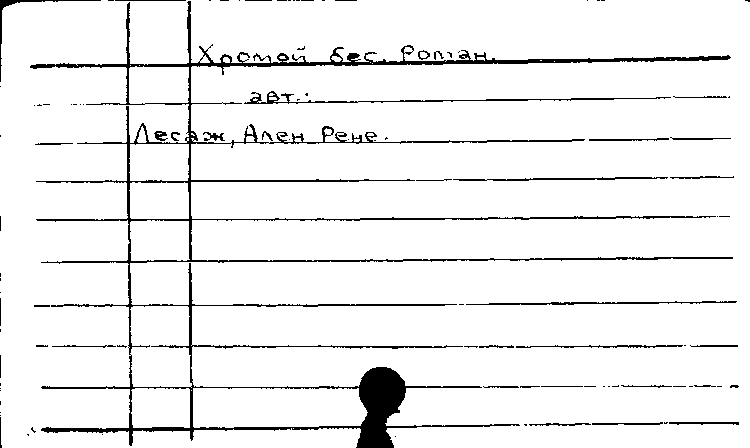 Хромой бес. Роман.
авт.:
Лесаж, Ален Рене.